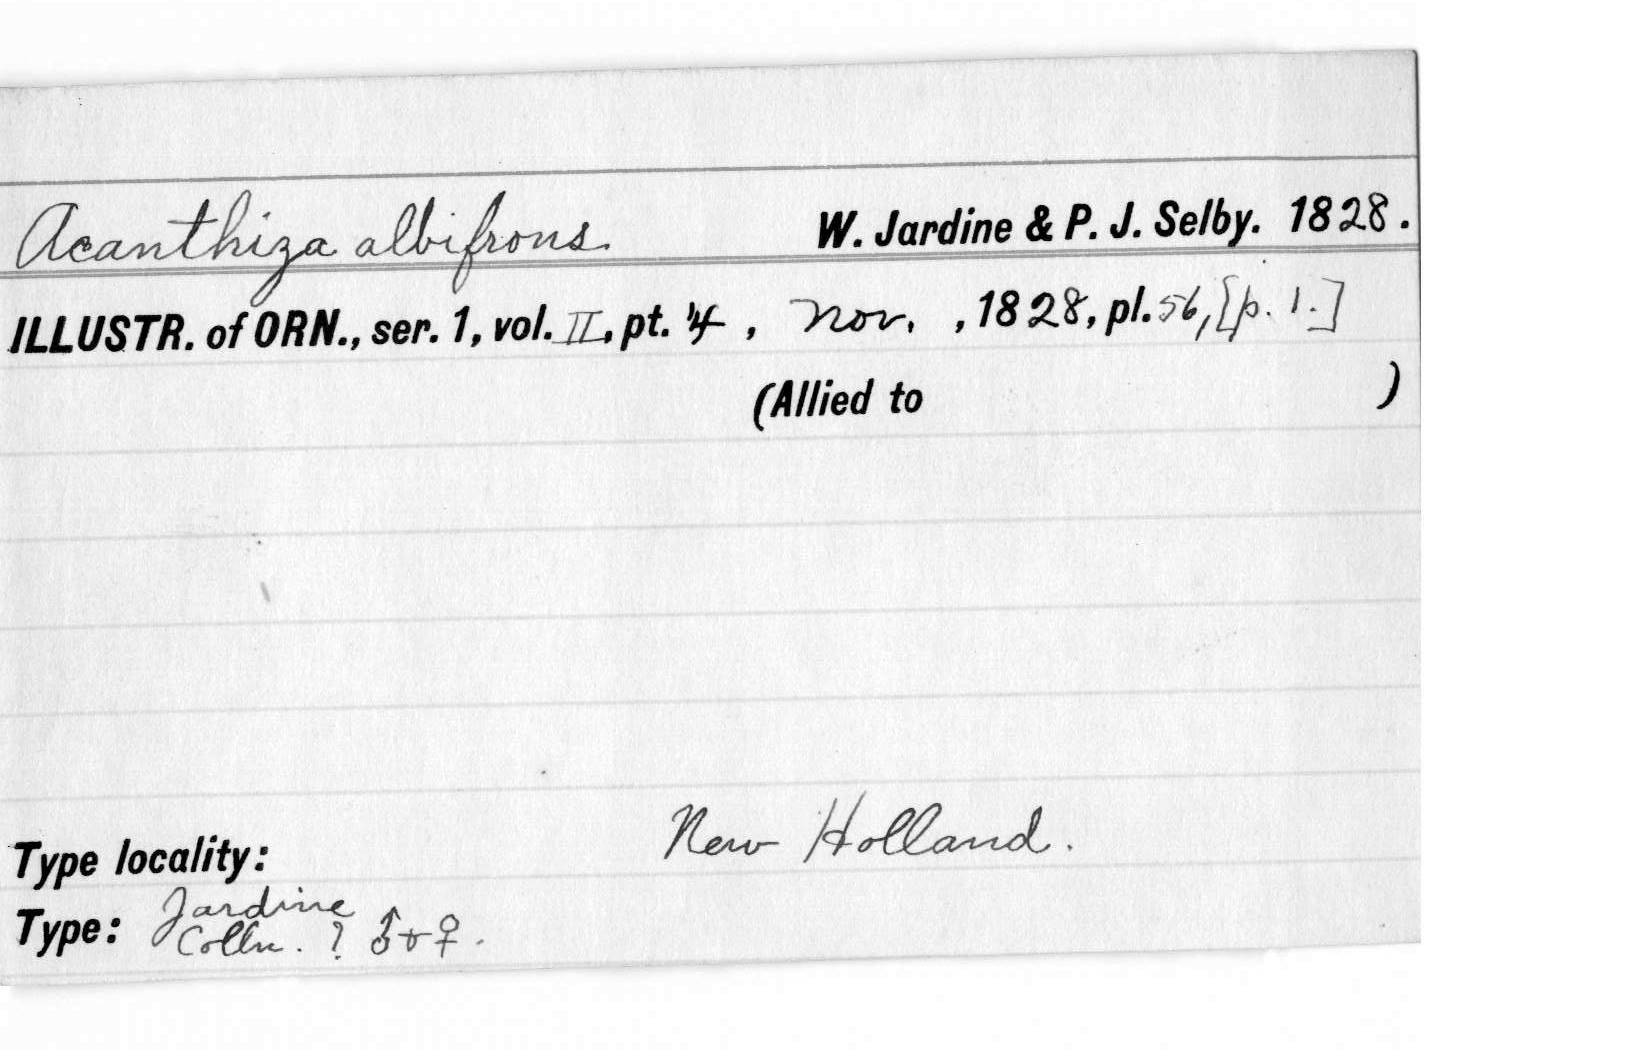 Acanthiza albifrons. W. Jardine & P. J. Selby. 1828.
ILLUSTR. of ORN., ser. 1, vol. II, pt. 4, Nov. , 1828, pl. 56, [p. 1.]
(Allied to )
Type locality: New Holland.
Type: Jardine
Colln. ? ♂ + ♀.